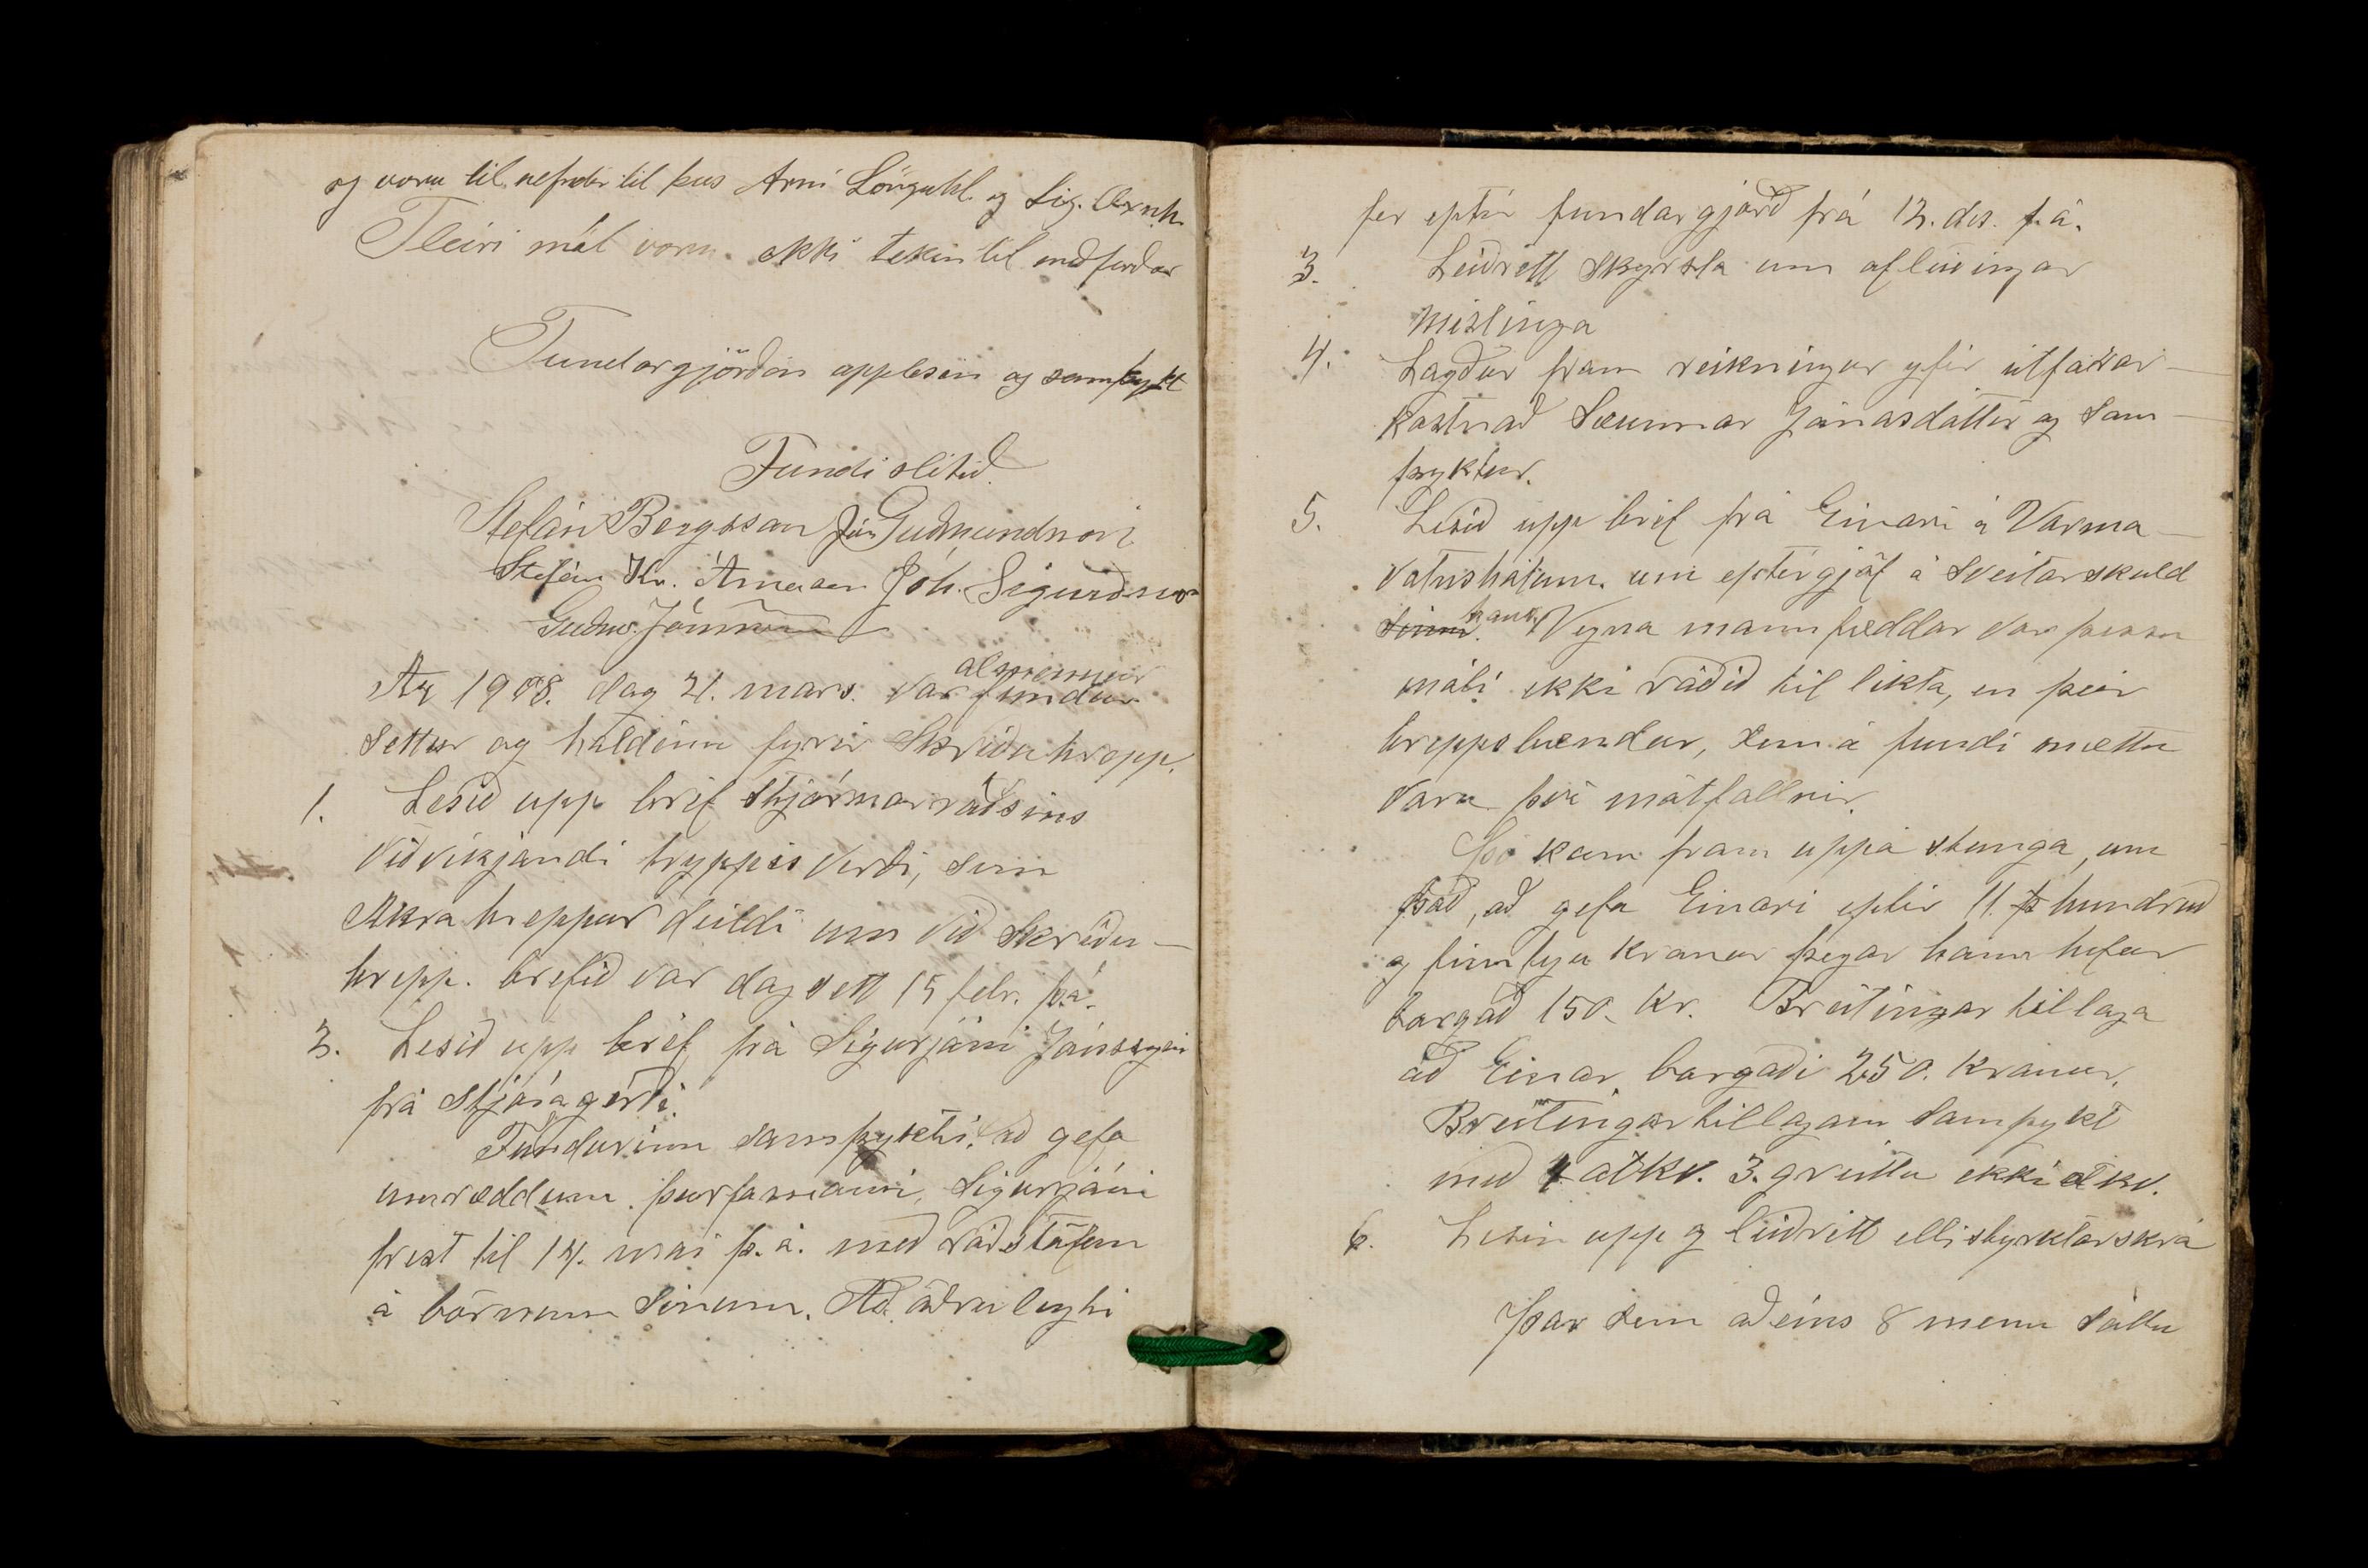 og voru til nefndir til þess Arni Lönguhl. og Sig. Ørnh.
Fleiri mál voru ekki tekin til meðferðar
Fundargjörðin upplesin og samþykt
Fundi slitið.
Stefán Bergsson Jón Guðmundsson
Stefán Kr. Árnason Jóh. Sigurðsson
Guðm. Jónsson
Ár 1908. dag 21. mars. var almennur fundur
settur og haldinn fyrir Skriðuhrepp.
1. Lesið upp bréf stjórnarráðsins
viðvíkjandi tryppisverði, sem
Akrahreppur deildi um við Skriðu-
hrepp. bréfið var dagsett 15 febr. þ.á.
2. Lesið upp bréf frá Sigurjóni Jónssyni
frá Stjóragerði.
Fundurinn samþykkti að gefa
umræddum þurfamanni, Sigurjóni
frest til 14. mai þ. á. með ráðstöfun
á börnum sínum. Að öðru leyti
fer eptir fundargjörð frá 12. des. f. á.
3. Leiðrétt skyrsla um afleiðingar
mislinga
4. Lagður fram reikningur yfir útfarar-
kostnað Sæunnar Jónasdóttir og sam-
þyktur.
5. Lesið upp bréf frá Einari á Varma-
vatnshólum. um eptirgjöf á sveitarskuld
sinni hans. Vegna mannfæddar var þessu
máli ekki ráðið til likta, en þeir
hreppsbændur, sem á fundi mættu
voru því mótfallnir.
Þó kom fram uppá stunga, um
það, að gefa Einari eptir 11. hundruð
og fimtyu krónur þegar hann hefur
borgað 150. kr. Breitingar tillaga
að Einar borgaði 250. krónur.
Breitingartillagan samþykt
með 4 atkv. 3. greiddu ekki atkv.
6. Lesin upp og leiðrétt ellistyrktarskrá
Þar sem aðeins 8 menn sóttu